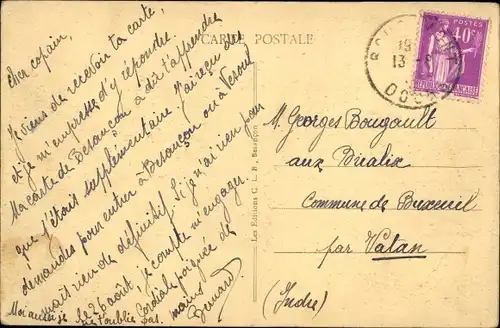 CARTE POSTALE
Cher copain,
Je viens de recevoir ta carte,
et je m'empresse d'y répondre.
Ma carte de Besançon a dû t'apprendre
que j'étais supplémentaire. J'ai reçu des
demandes pour entrer à Besançon ou à Vesoul
mais rien de définitif. Si je n'ai rien pour
le 25 août, je compte m'engager.
Cordiale poignée de
mains
Bernard
Moi aussi je
t'oublie pas.
Les Editions C. L. B., Besançon
POSTES
40c
REPUBLIQUE FRANÇAISE
13
M. Georges Bougault
aux
Commune de Buxeuil
par Vatan
(Indre)